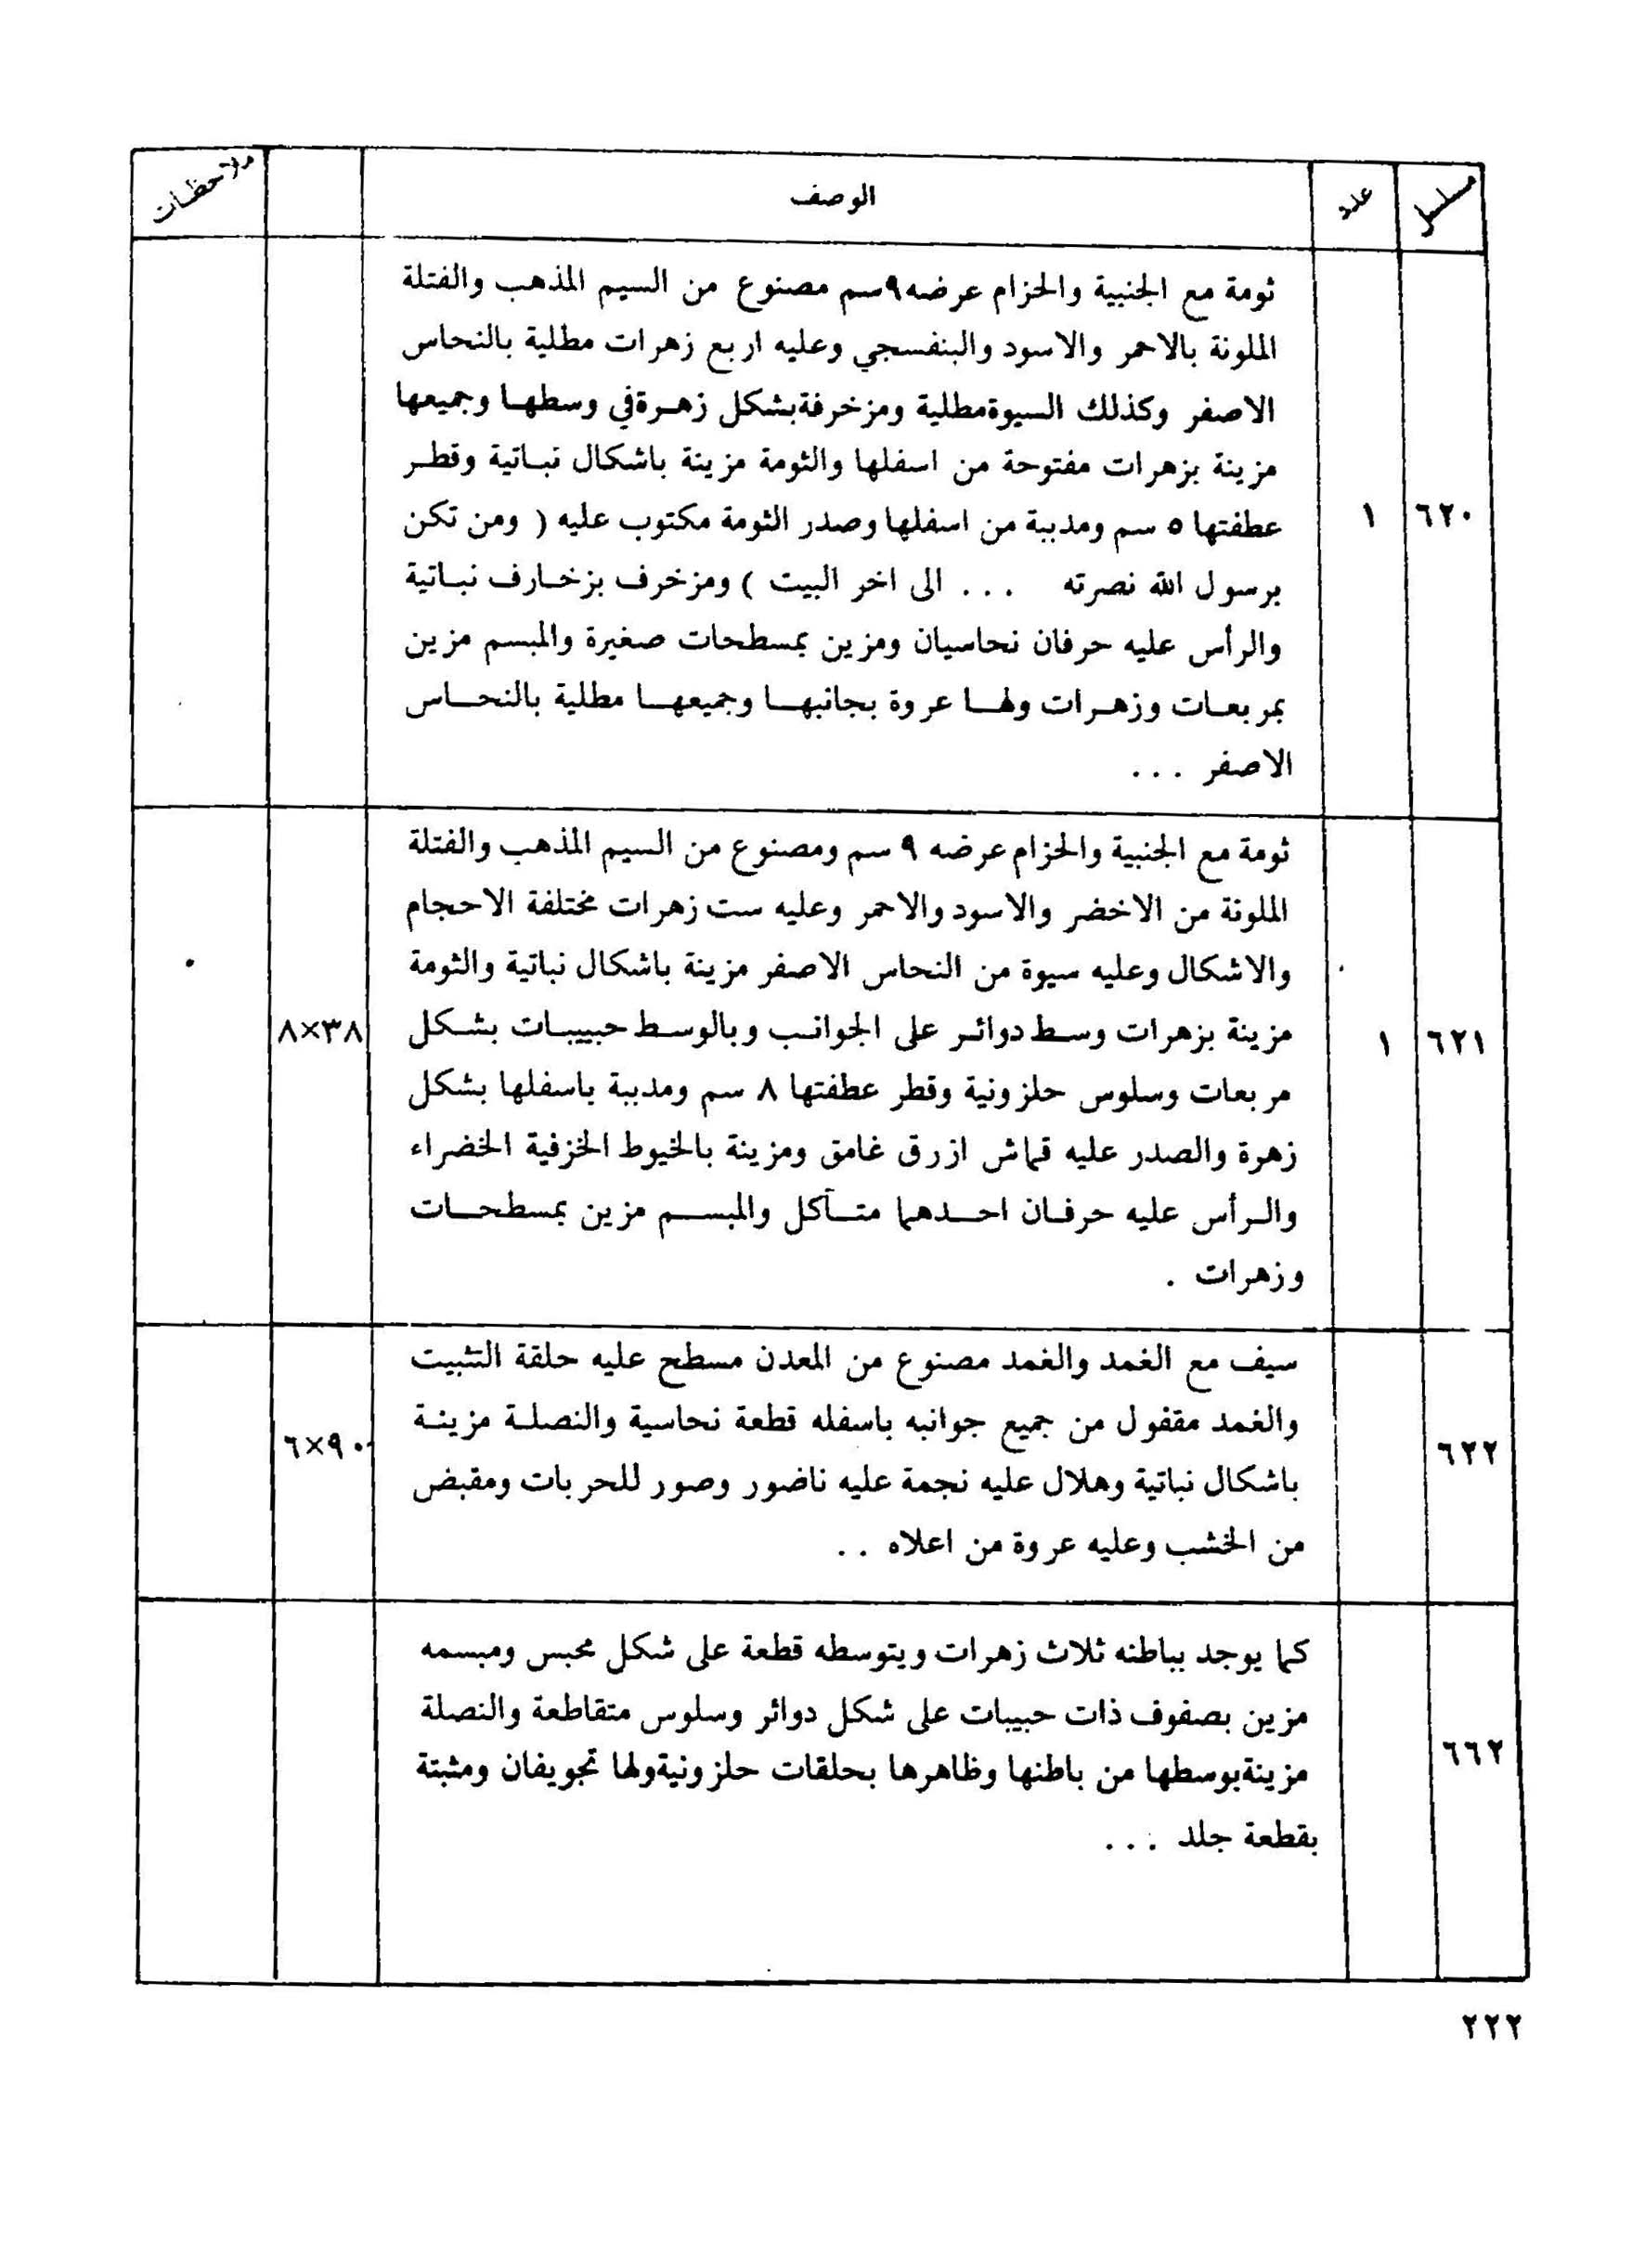 مسلسل عدد الوصف ملاحظات
ثومة مع الجنبية والحزام عرضه٩سم مصنوع من السيم المذهب والفتلة
الملونة بالاحمر والاسود والبنفسجي وعليه اربع زهرات مطلية بالنحاس
الاصفر وكذلك السيوةمطلية ومزخرفةبشكل زهرةفي وسطها وجميعها
مزينة بزهرات مفتوحة من اسفلها والثومة مزينة باشكال نباتية وقطر
٦٢٠ ١ عطفتها ٥ سم ومدببة من اسفلها وصدر الثومة مكتوب عليه ( ومن تكن
برسول الله نصرته ... الى اخر البيت ) ومزخرف بزخارف نباتية
والرأس عليه حرفان نحاسيان ومزين بمسطحات صغيرة والمبسم مزين
بمربعات وزهرات ولها عروة بجانبها وجميعها مطلية بالنحاس
الاصفر ...
ثومة مع الجنبية والحزام عرضه ٩ سم ومصنوع من السيم المذهب والفتلة
الملونة من الاخضر والاسود والاحمر وعليه ست زهرات مختلفة الاحجام
والاشكال وعليه سيوة من النحاس الاصفر مزينة باشكال نباتية والثومة
٦٢١ ١ مزينة بزهرات وسط دوائر على الجوانب وبالوسط حبيبات بشكل ٣٨×٨
مربعات وسلوس حلزونية وقطر عطفتها ٨ سم ومدببة باسفلها بشكل
زهرة والصدر عليه قماش ازرق غامق ومزينة بالخيوط الخزفية الخضراء
والرأس عليه حرفان احدهما متآكل والمبسم مزين بمسطحات
وزهرات .
سيف مع الغمد والغمد مصنوع من المعدن مسطح عليه حلقة التثبيت
٦٢٢ والغمد مقفول من جميع جوانبه باسفله قطعة نحاسية والنصلة مزينة ٩٠×٦
باشكال نباتية وهلال عليه نجمة عليه ناضور وصور للحربات ومقبض
من الخشب وعليه عروة من اعلاه ..
كما يوجد بباطنه ثلاث زهرات ويتوسطه قطعة على شكل محبس ومبسمه
مزين بصفوف ذات حبيبات على شكل دوائر وسلوس متقاطعة والنصلة
٦٦٢ مزينةبوسطها من باطنها وظاهرها بحلقات حلزونيةولها تجويفان ومثبتة
بقطعة جلد ...
٢٢٢